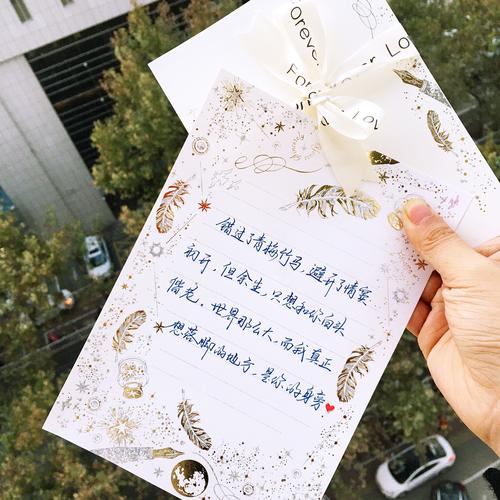 Forever Lo
Forever
Lov
错过了青梅竹马,避开了情窦
初开,但余生,只想和你白头
偕老。世界那么大,而我真正
想落脚的地方,是你的身旁